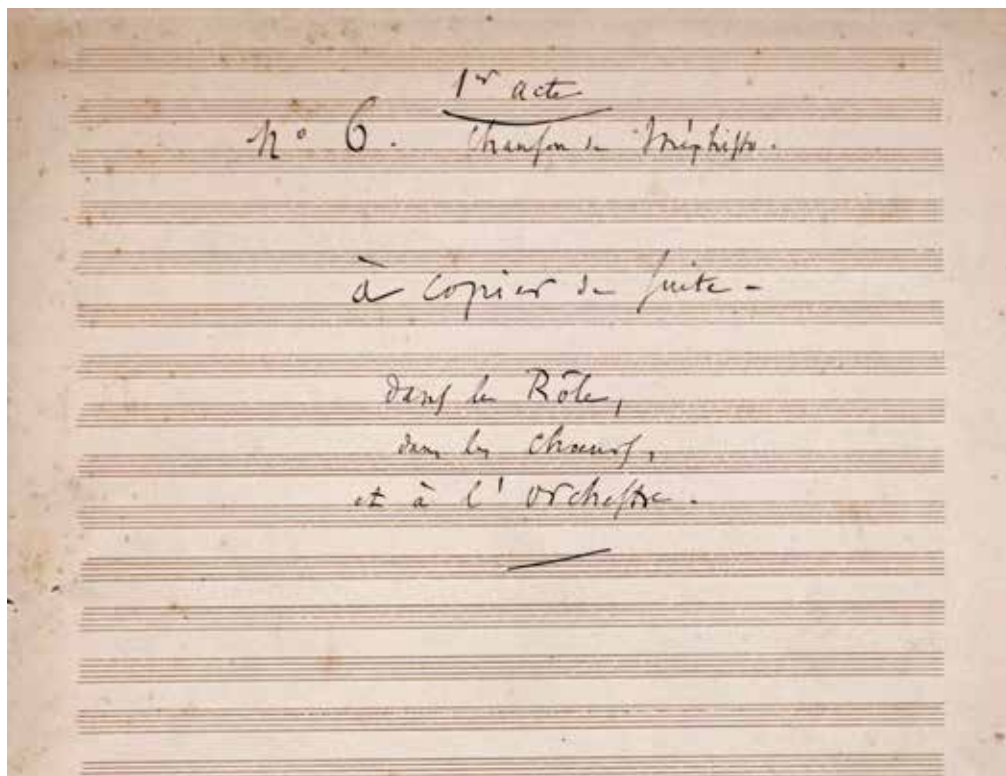 1er acte
N° 6. Chanson de Méphisto.
à copier de suite -
dans le Rôle,
dans les chœurs,
et à l'orchestre.